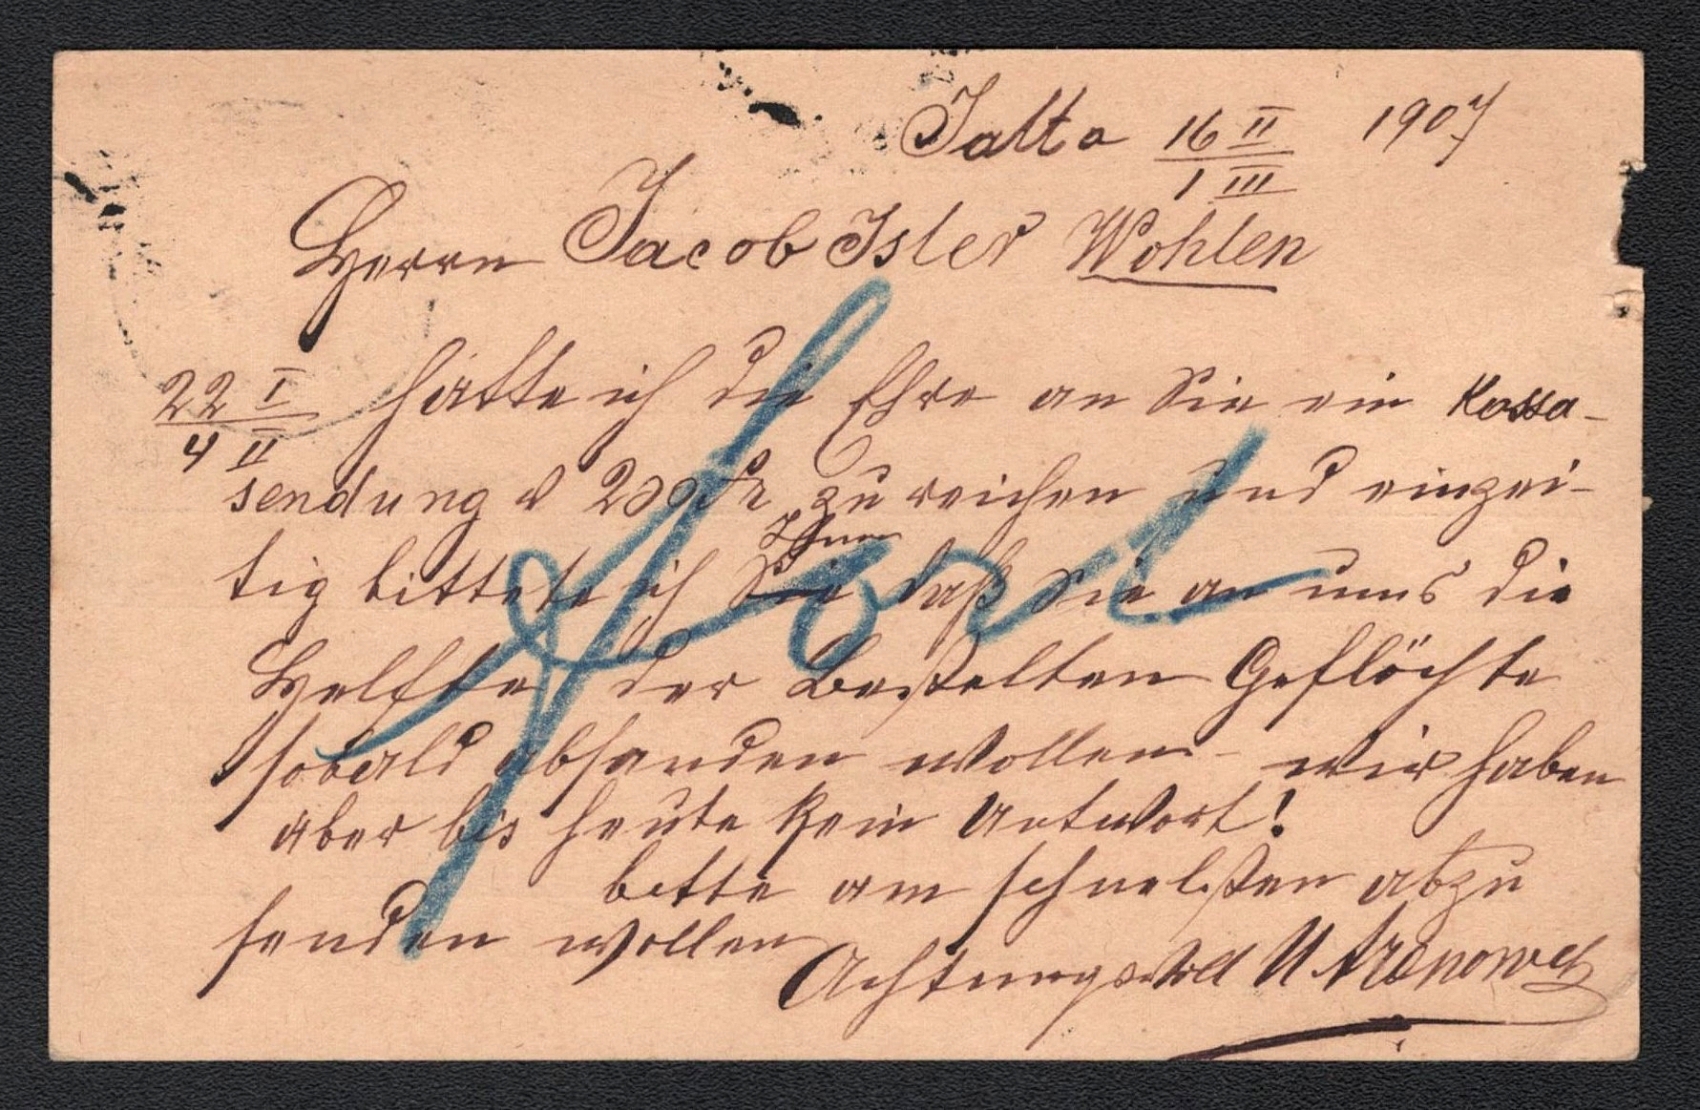 Jalta 16 II 1907
1 III
Herrn Jacob Isler Wohlen
22 I hatte ich die Ehre an Sie ein Kassa-
4 II
sendung v 200 Fr zu reichen und einzei-
Ihnen
tig bittete ich Sie daß Sie an uns die
Helfte der Bestelten Geflöchte
sobald absenden wollen - wir haben
aber bis heute kein Antwort!
bitte am schnelsten abzu
senden wollen
Achtungsvol